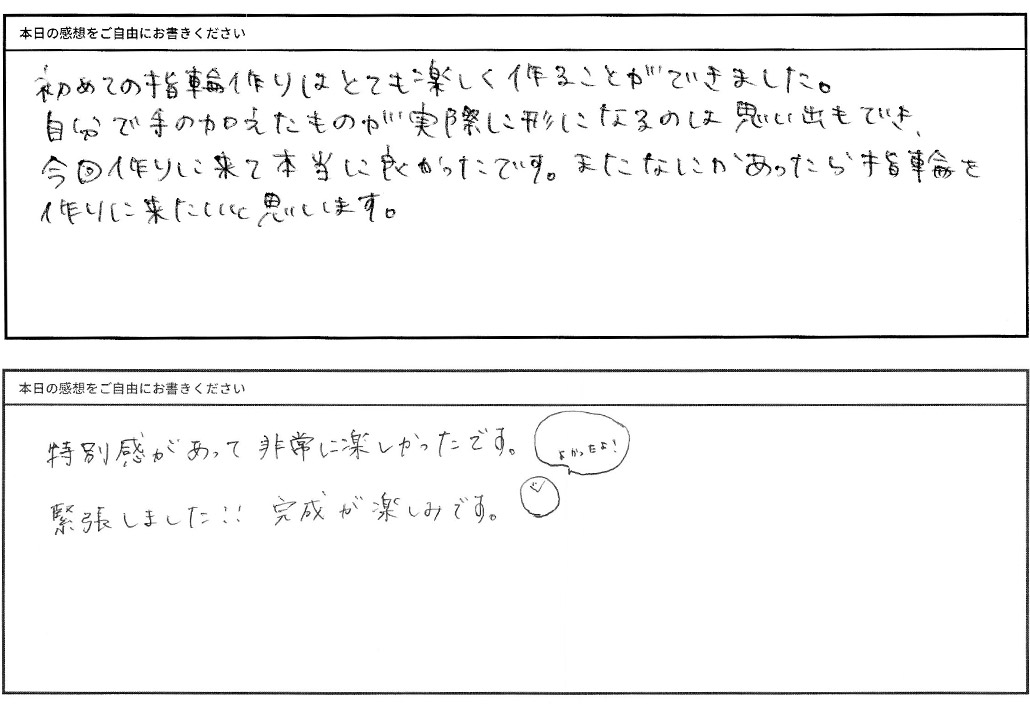 本日の感想をご自由にお書きください
初めての指輪作りはとても楽しく作ることができました。
自分で手の加えたものが実際に形になるのは思い出もでき、
今回作りに来て本当に良かったです。またなにかあったら指輪を
作りに来たいと思います。
本日の感想をご自由にお書きください
特別感があって非常に楽しかったです。
よかったよ!
緊張しました!! 完成が楽しみです。